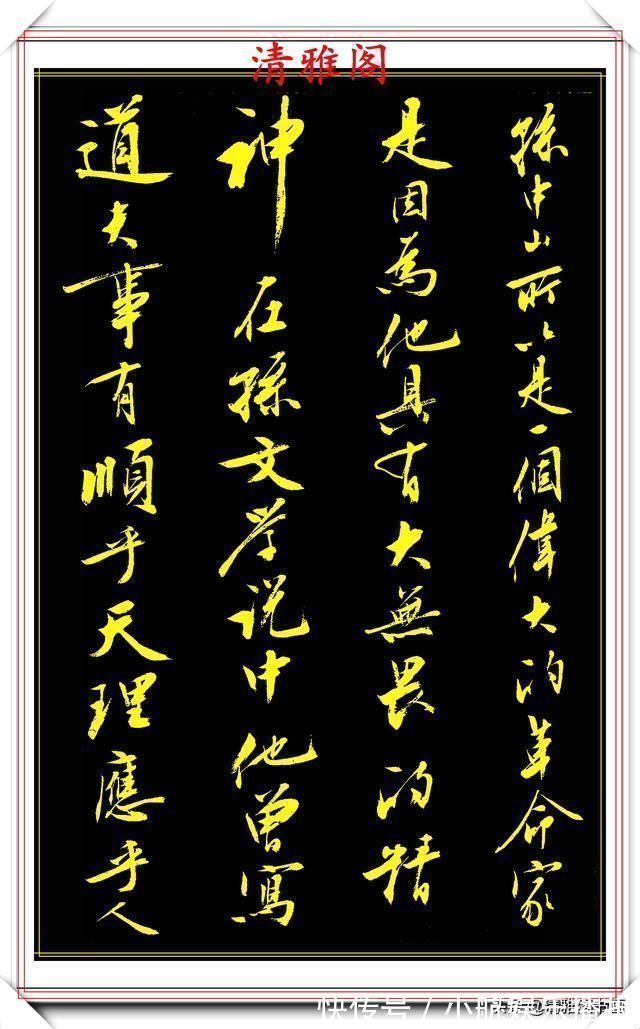 清雅阁
孫中山所以是一個偉大的革命家
是因為他具有大無畏的精
神在孫文学说中他曾寫
道夫事有順乎天理應乎人
快传号/小